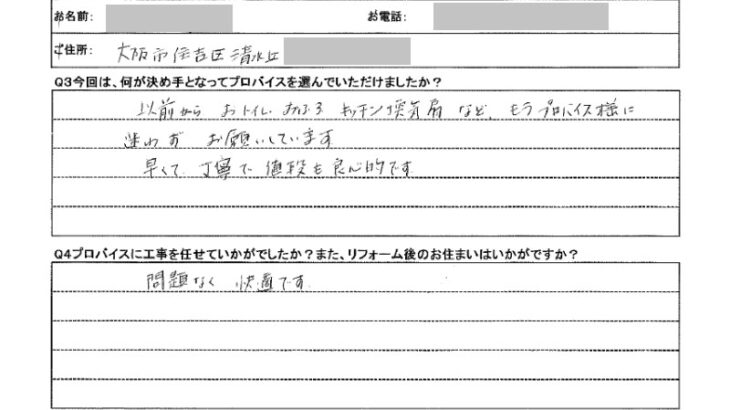 お名前: お電話:
ご住所: 大阪市住吉区清水丘
Q3今回は、何が決め手となってプロバイスを選んでいただけましたか?
以前から おトイレ おふろ キッチン換気扇 など、もうプロバイス様に
迷わず お願いしています
早くて 丁寧で 値段も良心的です
Q4プロバイスに工事を任せていかがでしたか?また、リフォーム後のお住まいはいかがですか?
問題なく 快適です.